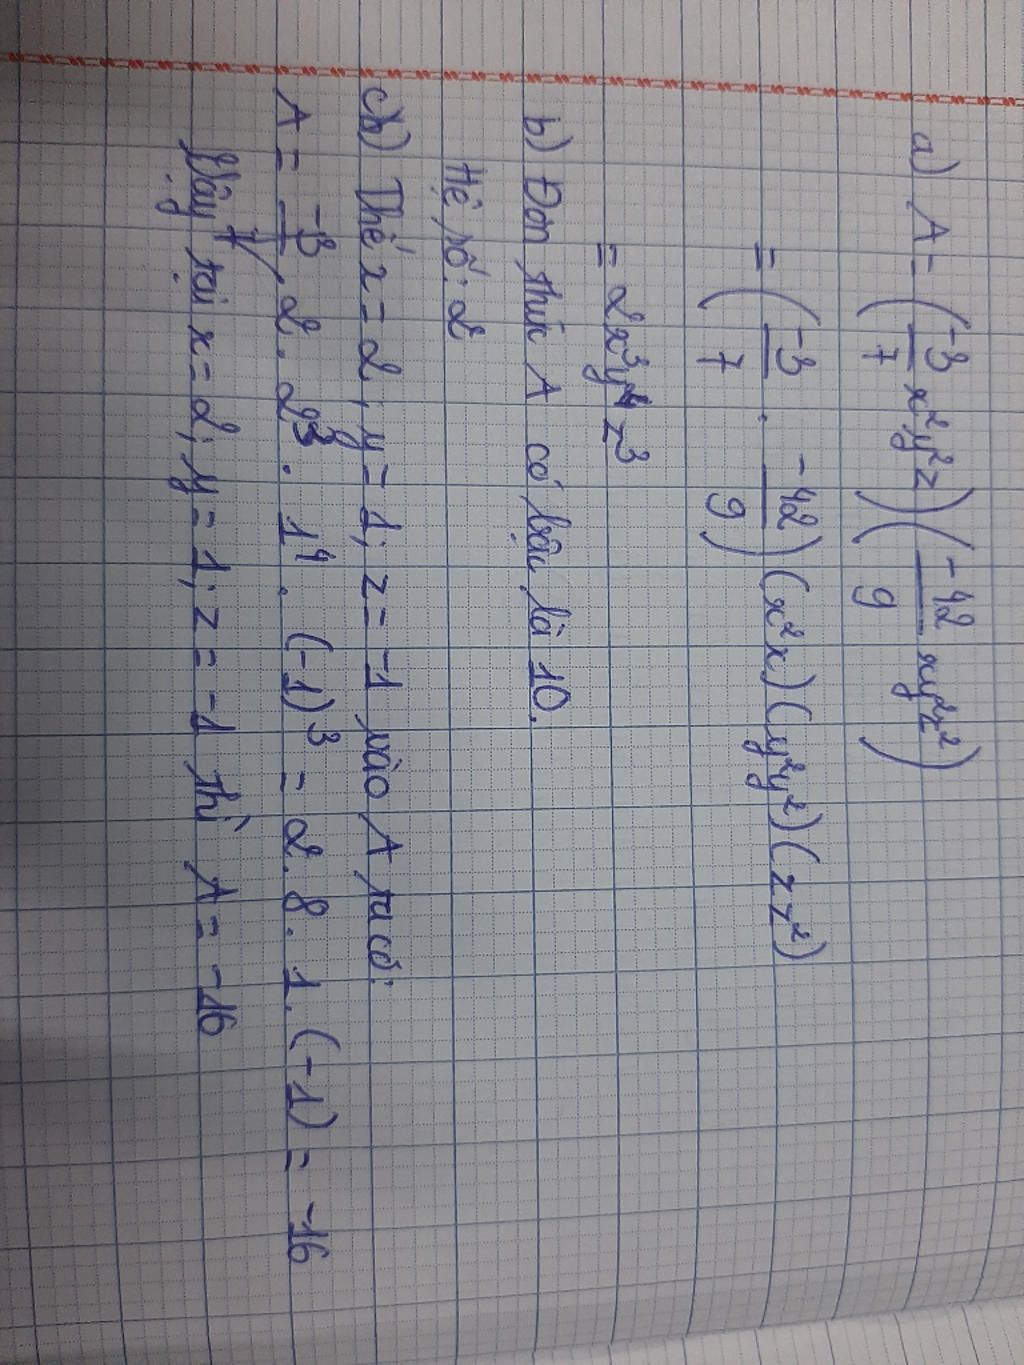 a) A = (-3/7 x²y²z)(-42/9 xy²z²)
= (-3/7 . -42/9)(x²x)(y²y²)(zz²)
= 2x³y⁴z³
b) Đơn thức A có bậc là 10.
Hệ số: 2
c) Thế x = 2; y = 1; z = -1 vào A ta có:
A = 2 . 2³ . 1⁴ . (-1)³ = 2 . 8 . 1 . (-1) = -16
Vậy tại x = 2; y = 1; z = -1 thì A = -16